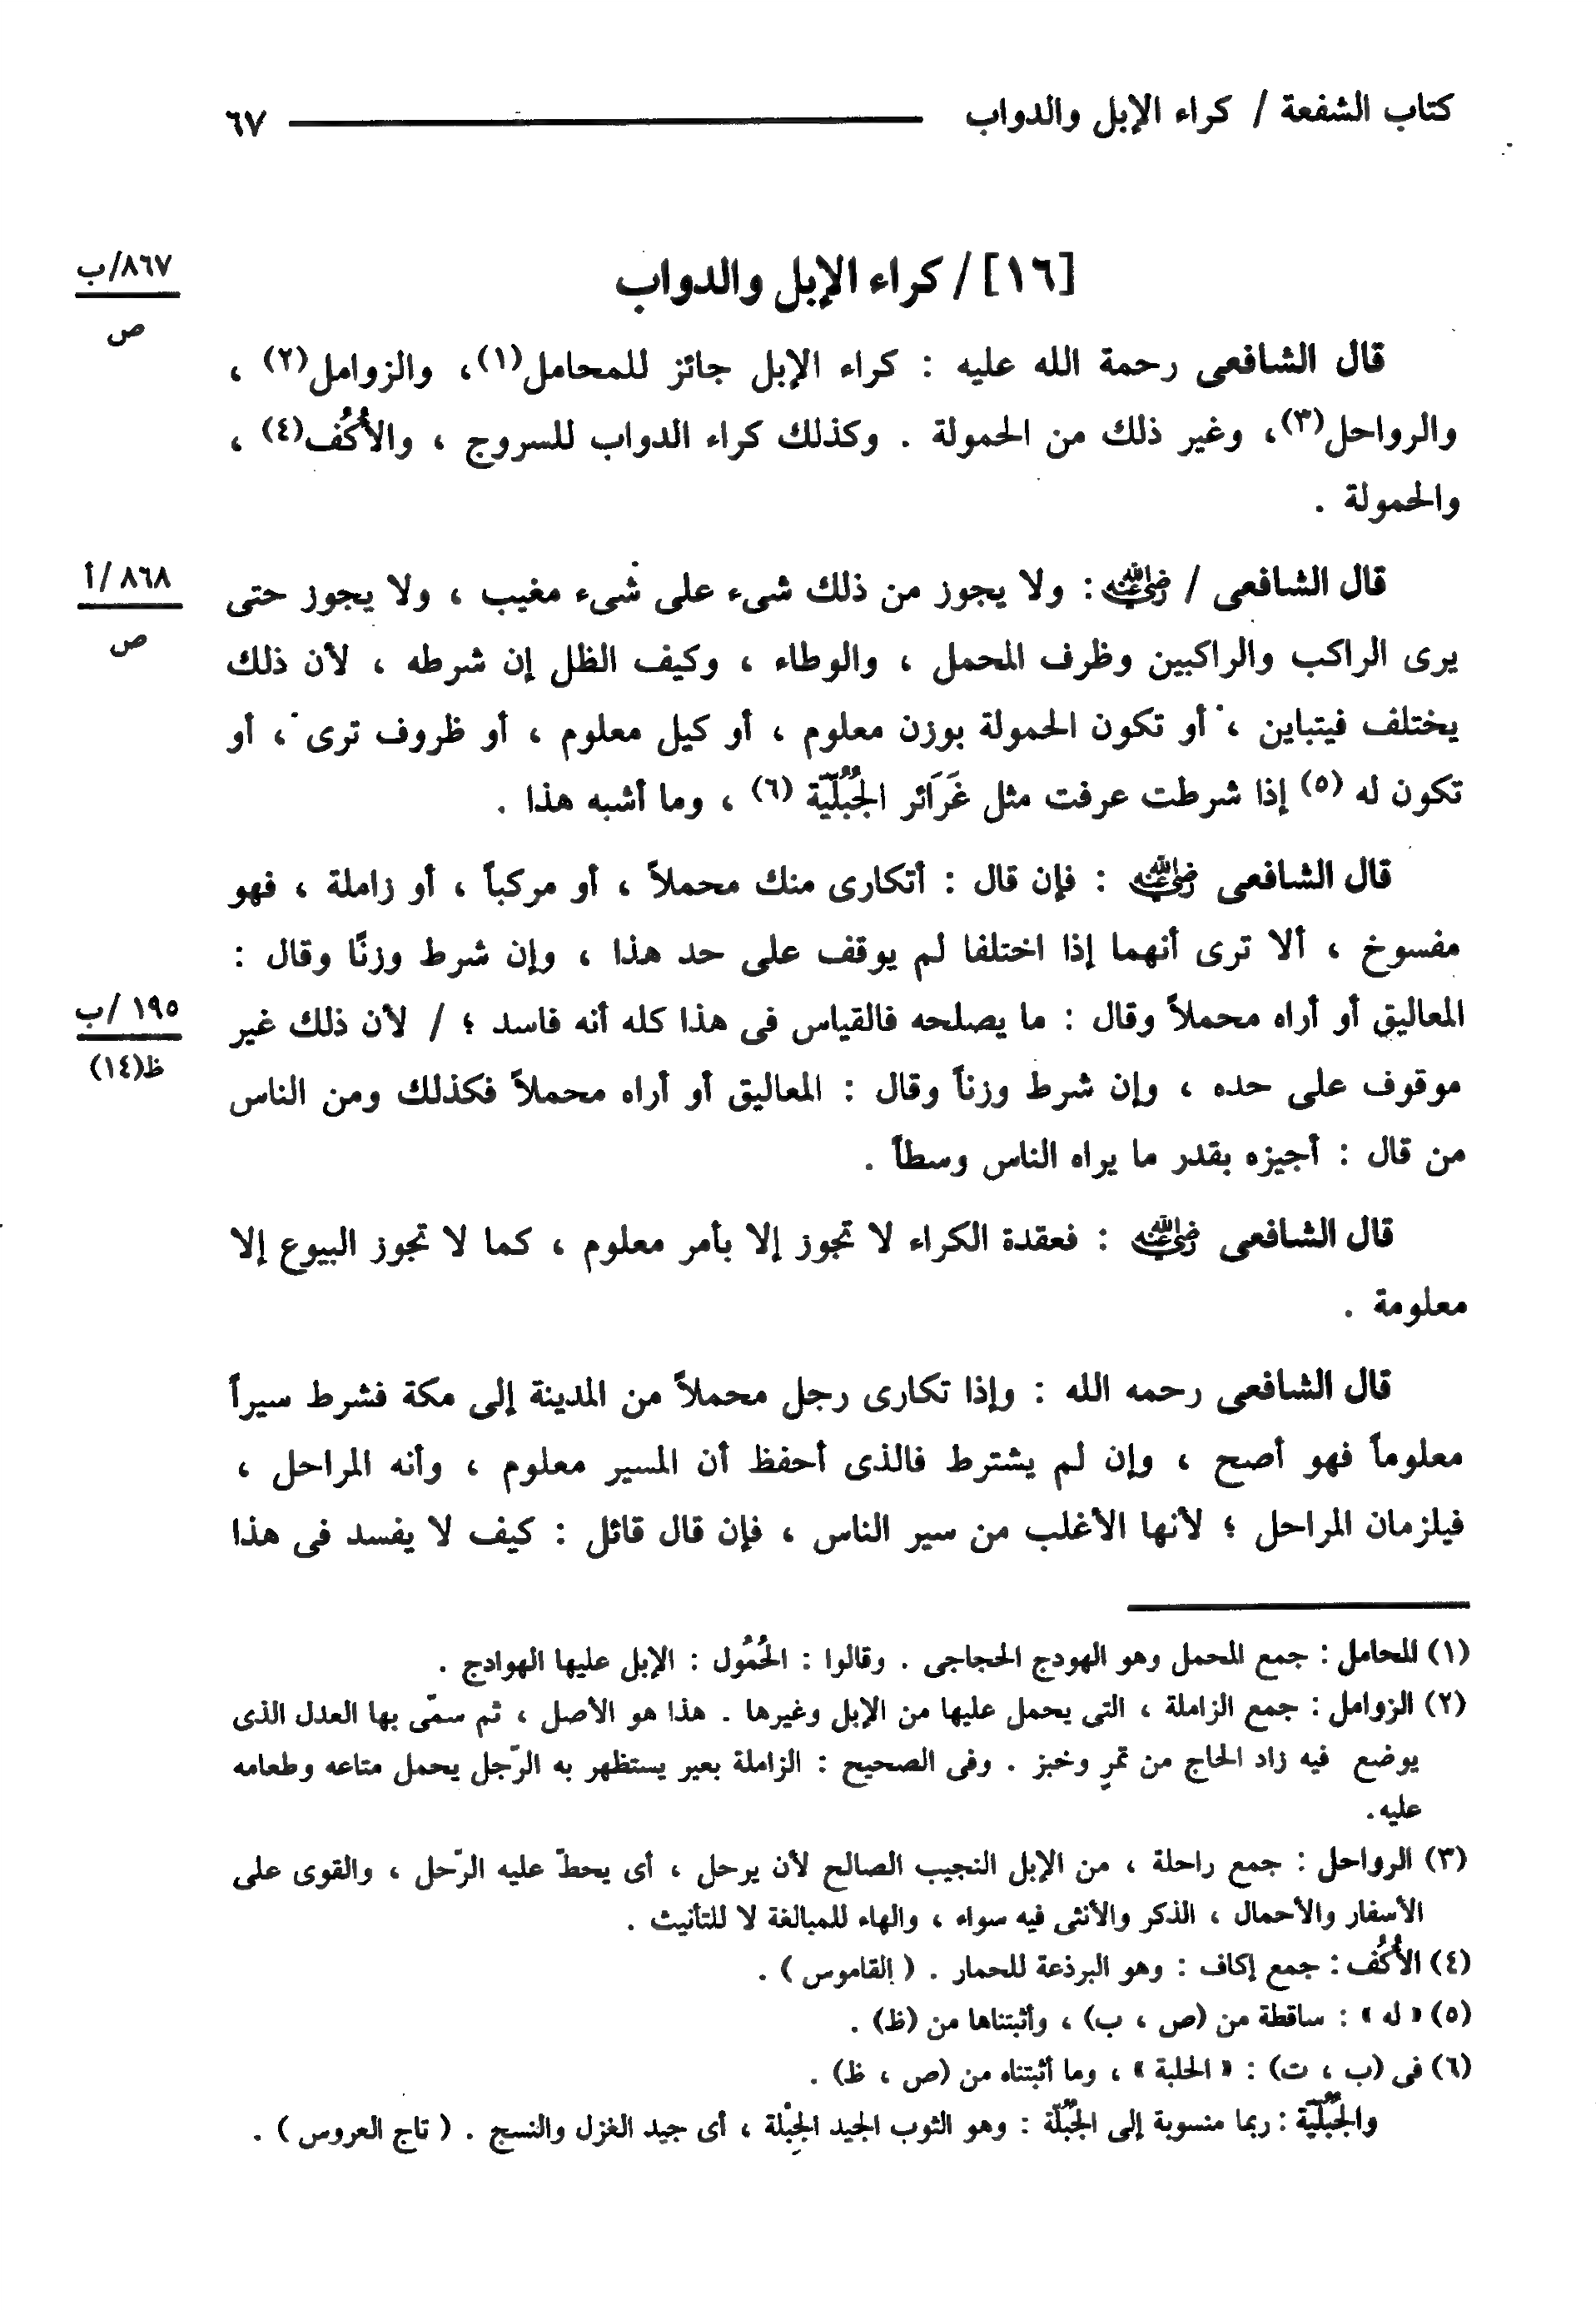 كتاب الشفعة / كراء الإبل والدواب ٦٧
[١٦] / كراء الإبل والدواب
٨٦٧/ب
ص
قال الشافعى رحمة الله عليه : كراء الإبل جائز للمحامل(١)، والزوامل(٢) ،
والرواحل(٣)، وغير ذلك من الحمولة . وكذلك كراء الدواب للسروج ، والأُكُف(٤) ،
والحمولة .
قال الشافعى / رضي الله عنه : ولا يجوز من ذلك شىء على شىء مغيب ، ولا يجوز حتى
٨٦٨/أ
ص
يرى الراكب والراكبين وظرف المحمل ، والوطاء ، وكيف الظل إن شرطه ، لأن ذلك
يختلف فيتباين ، أو تكون الحمولة بوزن معلوم ، أو كيل معلوم ، أو ظروف ترى ، أو
تكون له (٥) إذا شرطت عرفت مثل غَرَائر الجُبُلِّيَّة (٦) ، وما أشبه هذا .
قال الشافعى رضي الله عنه : فإن قال : أتكارى منك محملاً ، أو مركباً ، أو زاملة ، فهو
مفسوخ ، ألا ترى أنهما إذا اختلفا لم يوقف على حد هذا ، وإن شرط وزنًا وقال :
المعاليق أو أراه محملاً وقال : ما يصلحه فالقياس فى هذا كله أنه فاسد ؛ / لأن ذلك غير
١٩٥ /ب
ظ(١٤)
موقوف على حده ، وإن شرط وزناً وقال : المعاليق أو أراه محملاً فكذلك ومن الناس
من قال : أجيزه بقدر ما يراه الناس وسطاً .
قال الشافعى رضي الله عنه : فعقدة الكراء لا تجوز إلا بأمر معلوم ، كما لا تجوز البيوع إلا
معلومة .
قال الشافعى رحمه الله : وإذا تكارى رجل محملاً من المدينة إلى مكة فشرط سيراً
معلوماً فهو أصح ، وإن لم يشترط فالذى أحفظ أن المسير معلوم ، وأنه المراحل ،
فيلزمان المراحل ؛ لأنها الأغلب من سير الناس ، فإن قال قائل : كيف لا يفسد فى هذا
(١) للمحامل : جمع المحمل وهو الهودج الحجاجى . وقالوا : الحُمُول : الإبل عليها الهوادج .
(٢) الزوامل : جمع الزاملة ، التى يحمل عليها من الإبل وغيرها . هذا هو الأصل ، ثم سمّى بها العدل الذى
يوضع فيه زاد الحاج من تمرٍ وخبز . وفى الصحيح : الزاملة بعير يستظهر به الرّجل يحمل متاعه وطعامه
عليه.
(٣) الرواحل : جمع راحلة ، من الإبل النجيب الصالح لأن يرحل ، أى يحطّ عليه الرّحل ، والقوى على
الأسفار والأحمال ، الذكر والأنثى فيه سواء ، والهاء للمبالغة لا للتأنيث .
(٤) الأُكُف : جمع إكاف : وهو البرذعة للحمار . ( القاموس ) .
(٥) « له » : ساقطة من (ص ، ب) ، وأثبتناها من (ظ) .
(٦) فى (ب ، ت) : « الحلبة » ، وما أثبتناه من (ص ، ظ) .
والجُبُلِّيَّة : ربما منسوبة إلى الجُبُلَّة : وهو الثوب الجيد الجِبْلة ، أى جيد الغزل والنسج . ( تاج العروس ) .